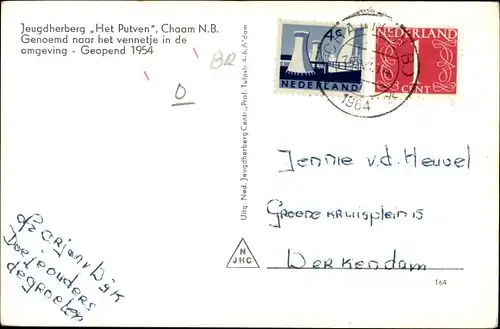 Jeugdherberg „Het Putven”, Chaam N.B.
Genoemd naar het vennetje in de
omgeving - Geopend 1954
BR
D
4c
NEDERLAND
NEDERLAND
CENT
1964
Uitg. Ned. Jeugdherberg Centr., Prof. Tulpstr 4-6, A'dam
Jennie v.d. Heuvel
Groenekruisplein 15
Werkendam
v. Dijk
Doe je ouders
de groeten
N
JHC
164